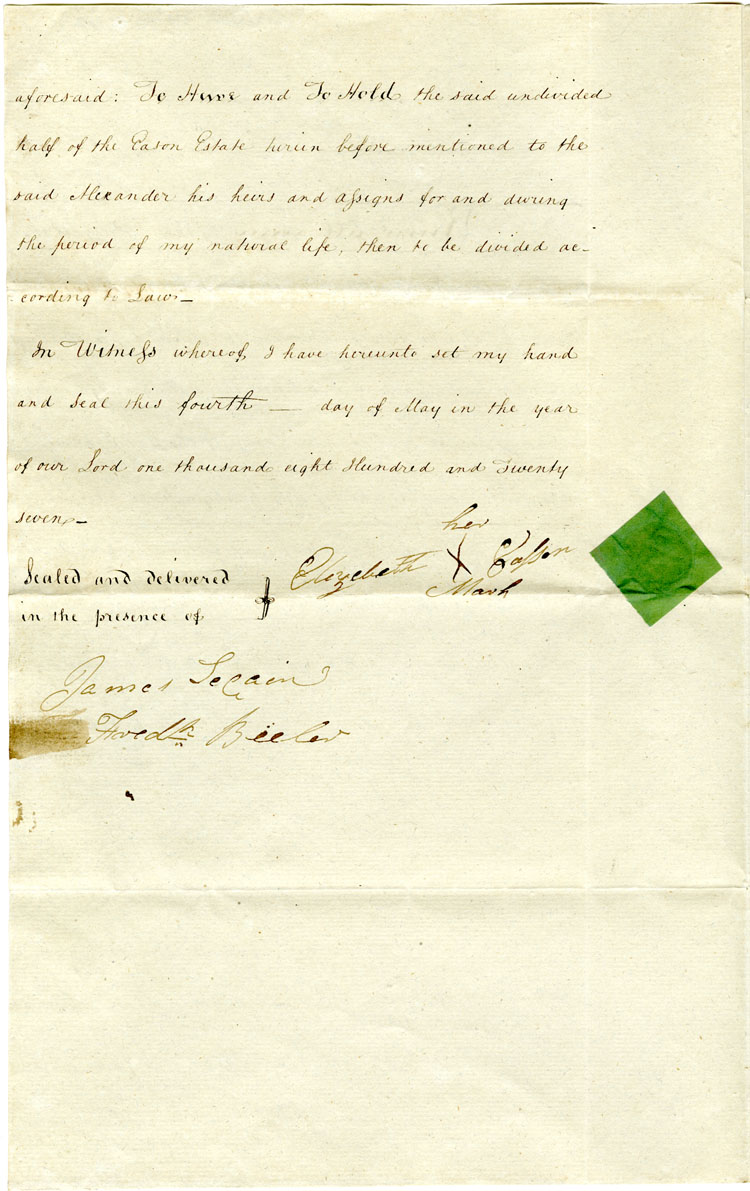 aforesaid: To Have and To Hold the said undivided
half of the Eason Estate herein before mentioned to the
said Alexander his heirs and assigns for and during
the period of my natural life, then to be divided ac-
cording to Law—
In Witness whereof, I have hereunto set my hand
and Seal this fourth — day of May in the year
of our Lord one thousand eight Hundred and Twenty
seven—
her
Elizabeth X Eassen
Mark
Sealed and delivered
in the presence of
James Secain
Fredk Beeler